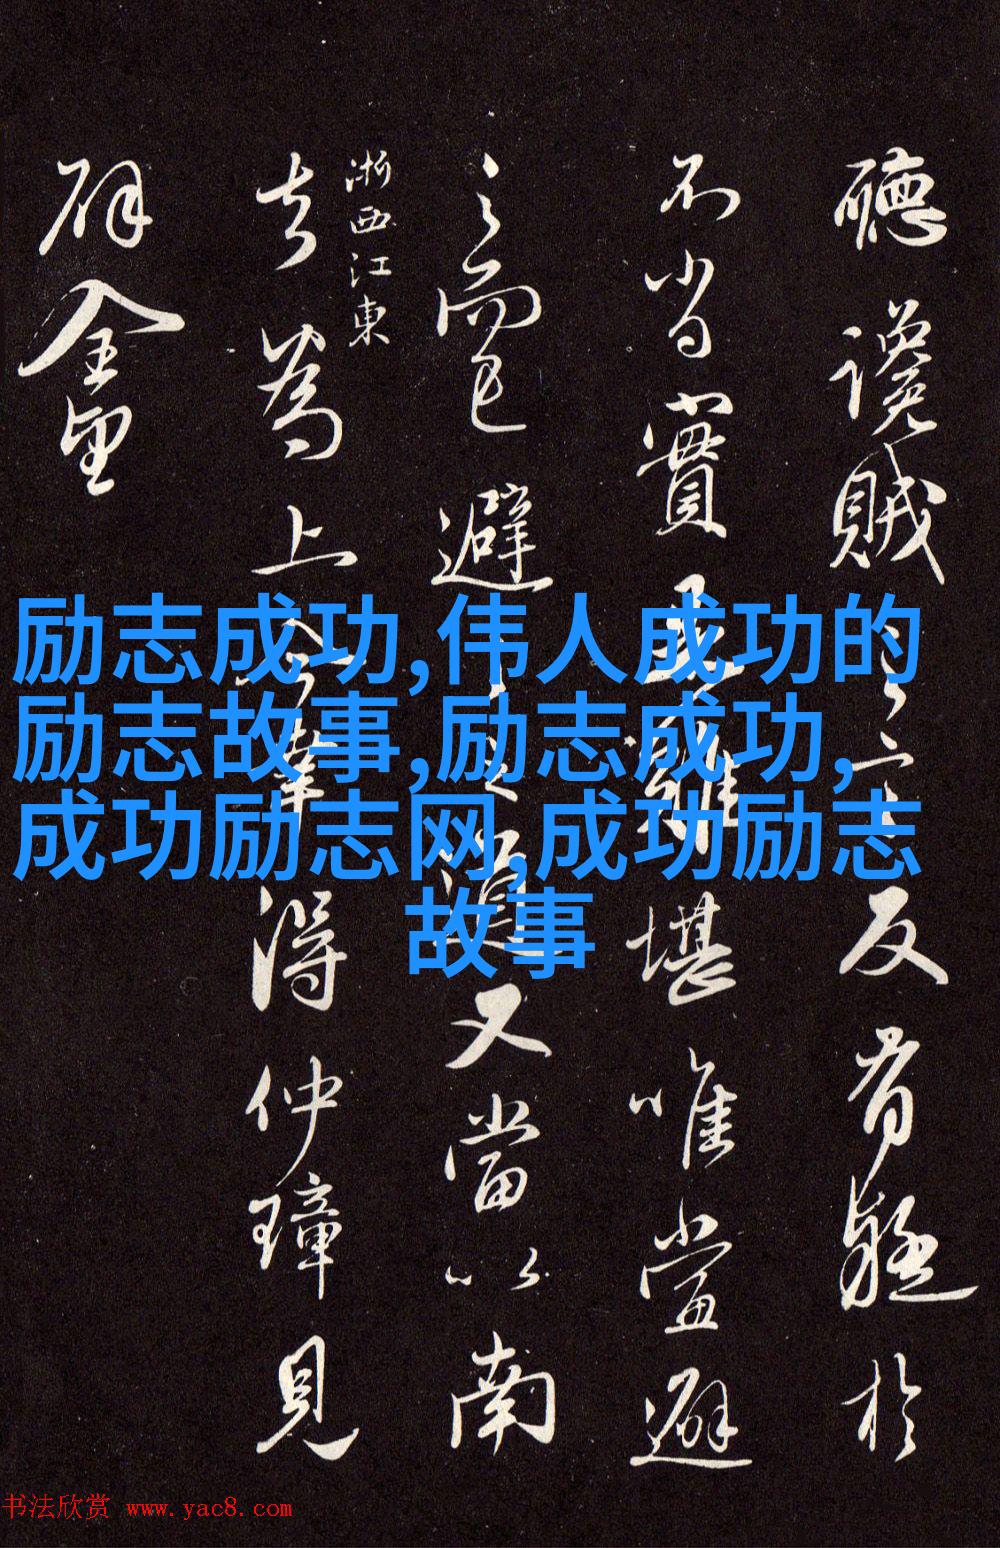 聽讒賊之言反有疑於
不當實難堪唯當避
之而已避之之道又當以南
浙西江東
去為上得仲璋見
辟金
励志成功,伟人成功的
励志故事,励志成功,
成功励志网,成功励志
故事
书法欣赏 www.yac8.com